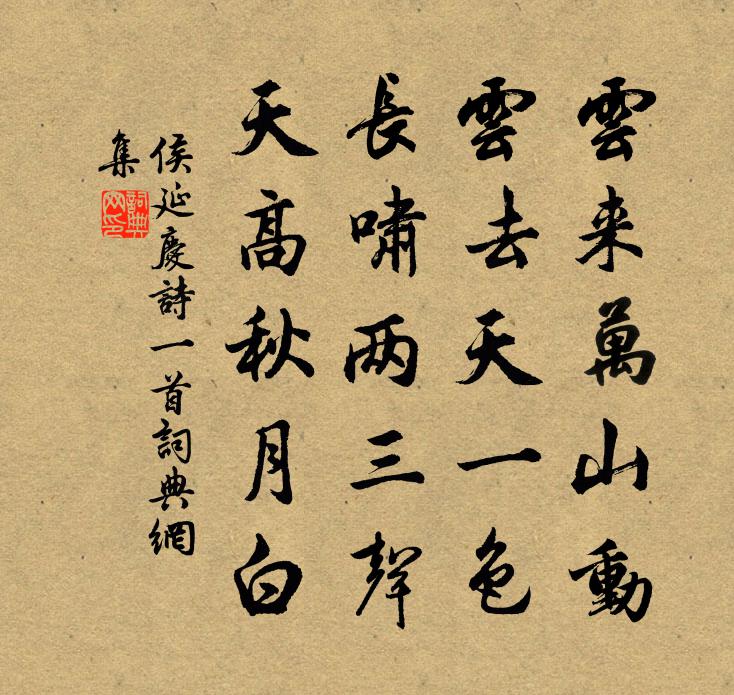 雲来萬山動
雲去天一色
長嘯两三聲
天高秋月白
侯延慶詩一首詞典網
集
詞典
网印